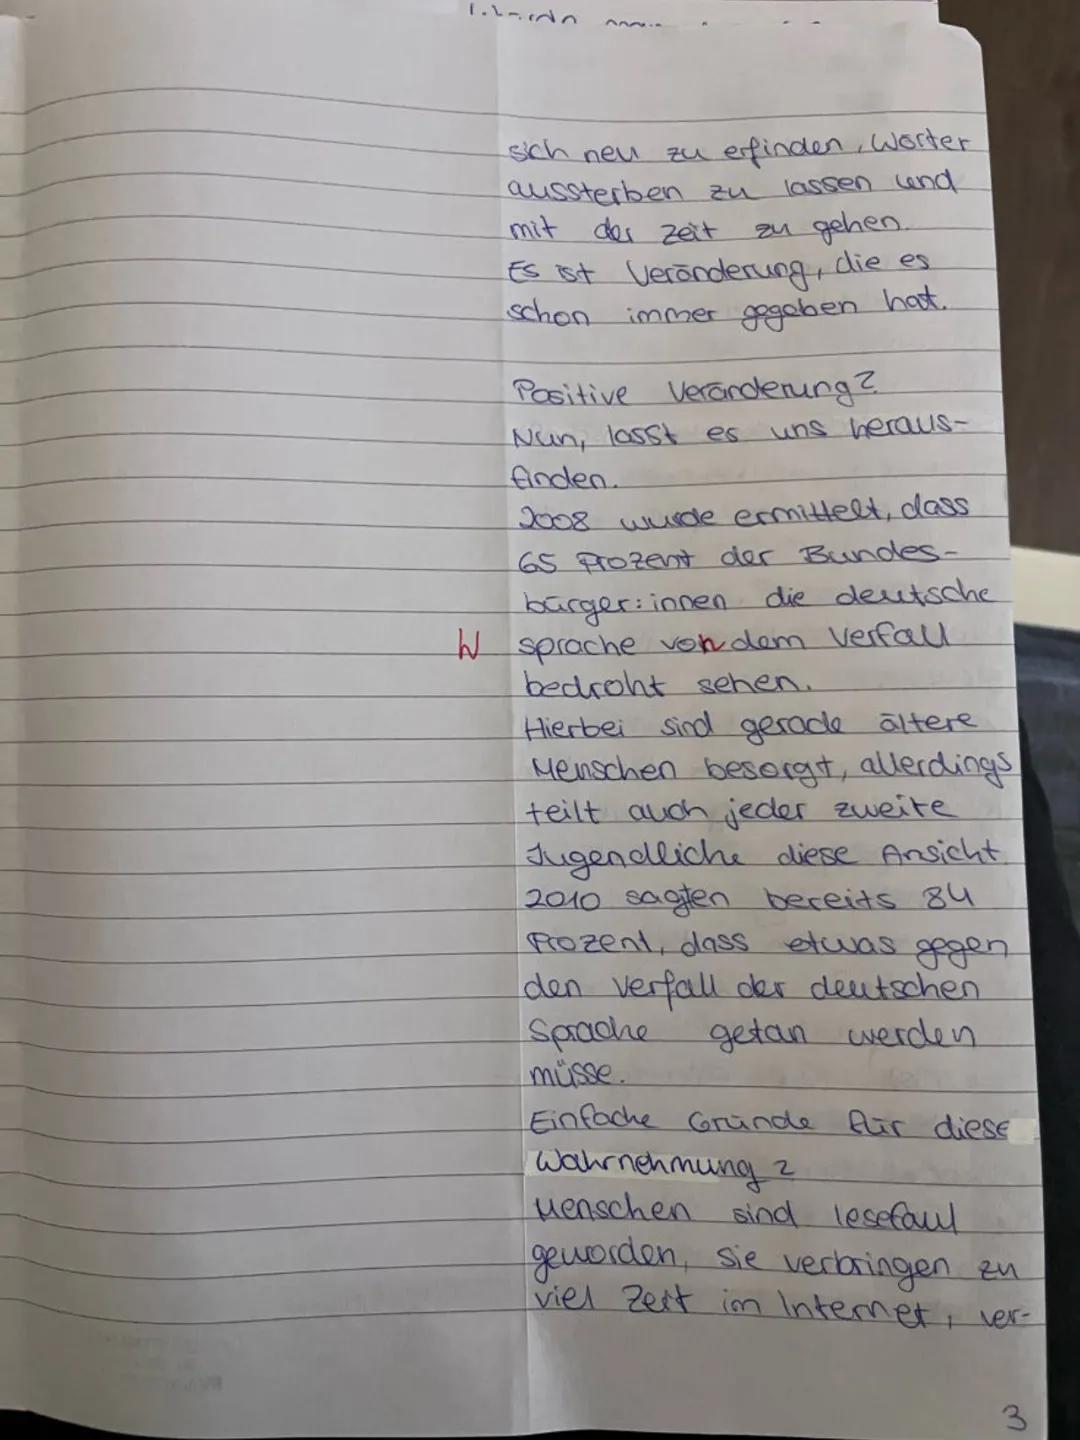 sich neu zu erfinden, Wörter
aussterben zu lassen und
mit der Zeit zu gehen.
Es ist Veränderung, die es
schon immer gegeben hat.
Positive Veränderung?
Nun, lasst es uns heraus-
finden.
2008 wurde ermittelt, dass
65 Prozent der Bundes-
bürger:innen die deutsche
W Sprache von dem Verfall
bedroht sehen.
Hierbei sind gerade ältere
Menschen besorgt, allerdings
teilt auch jeder zweite
Jugendliche diese Ansicht.
2010 sagten bereits 84
Prozent, dass etwas gegen
den Verfall der deutschen
Sprache getan werden
müsse.
Einfache Gründe für diese
Wahrnehmung?
Menschen sind lesefaul
geworden, sie verbringen zu
viel Zeit im Internet, ver-
3